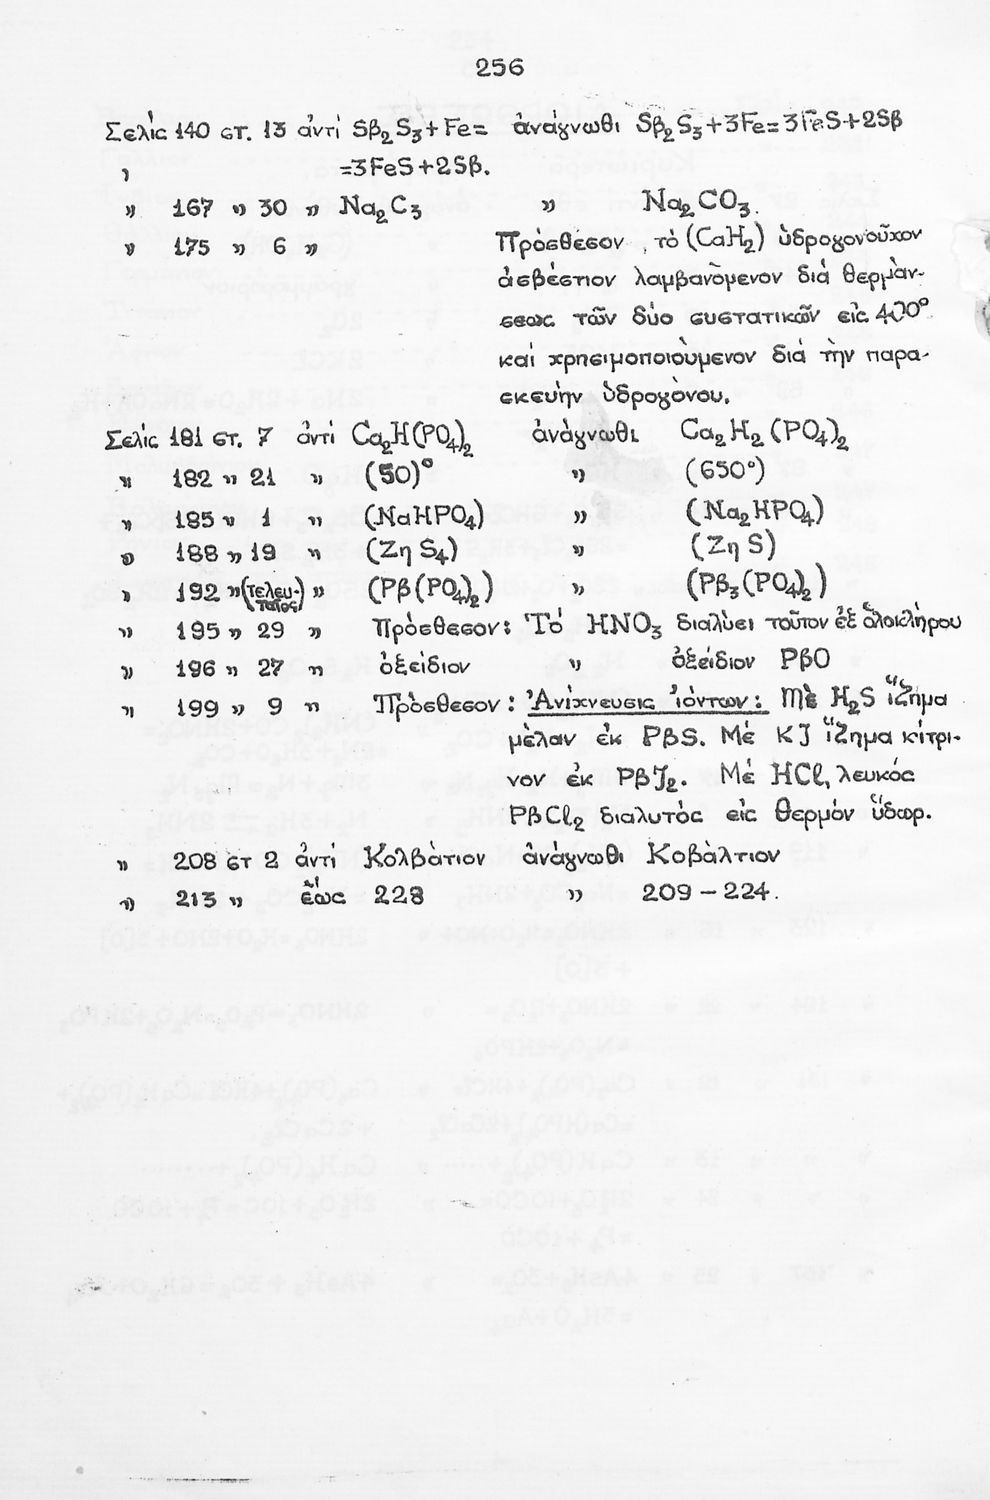 256
Σελὶς 140 στ. 13 ἀντί Sβ₂S₃+Fe= ἀνάγνωθι Sβ₂S₃+3Fe=3FeS+2Sβ
=3FeS+2Sβ.
” 167 ” 30 ” Na₂C₃ ” Na₂CO₃.
” 175 ” 6 ” Πρόσθεσον, τό (CaH₂) ὑδρογονοῦχον
ἀσβέστιον λαμβανόμενον διά θερμάν-
σεως τῶν δύο συστατικῶν εἰς 400°
καί χρησιμοποιούμενον διά τήν παρα-
σκευήν ὑδρογόνου.
Σελίς 181 στ. 7 ἀντί Ca₂H(PO₄)₂ ἀνάγνωθι Ca₂H₂(PO₄)₂
” 182 ” 21 ” (50)° ” (650°)
” 185 ” 1 ” (NaHPO₄) ” (Na₂HPO₄)
” 188 ” 19 ” (Zη S₄) ” (Zη S)
” 192 ” (τελευ-ταῖος) ” (Pβ(PO₄)₂) ” (Pβ₃(PO₄)₂)
” 195 ” 29 ” Πρόσθεσον: Τό HNO₃ διαλύει τοῦτον ἐξ ὁλοκλήρου
” 196 ” 27 ” ὀξείδιον ” ὀξείδιον PβO
” 199 ” 9 ” Πρόσθεσον: Ἀνίχνευσις ἰόντων: Μέ H₂S ἵζημα
μέλαν ἐκ PβS. Μέ KJ ἵζημα κίτρι-
νον ἐκ PβJ₂. Μέ HCl, λευκός
PβCl₂ διαλυτός εἰς θερμόν ὕδωρ.
” 208 στ 2 ἀντί Κολβάτιον ἀνάγνωθι Κοβάλτιον
” 213 ” ἕως 228 ” 209-224.